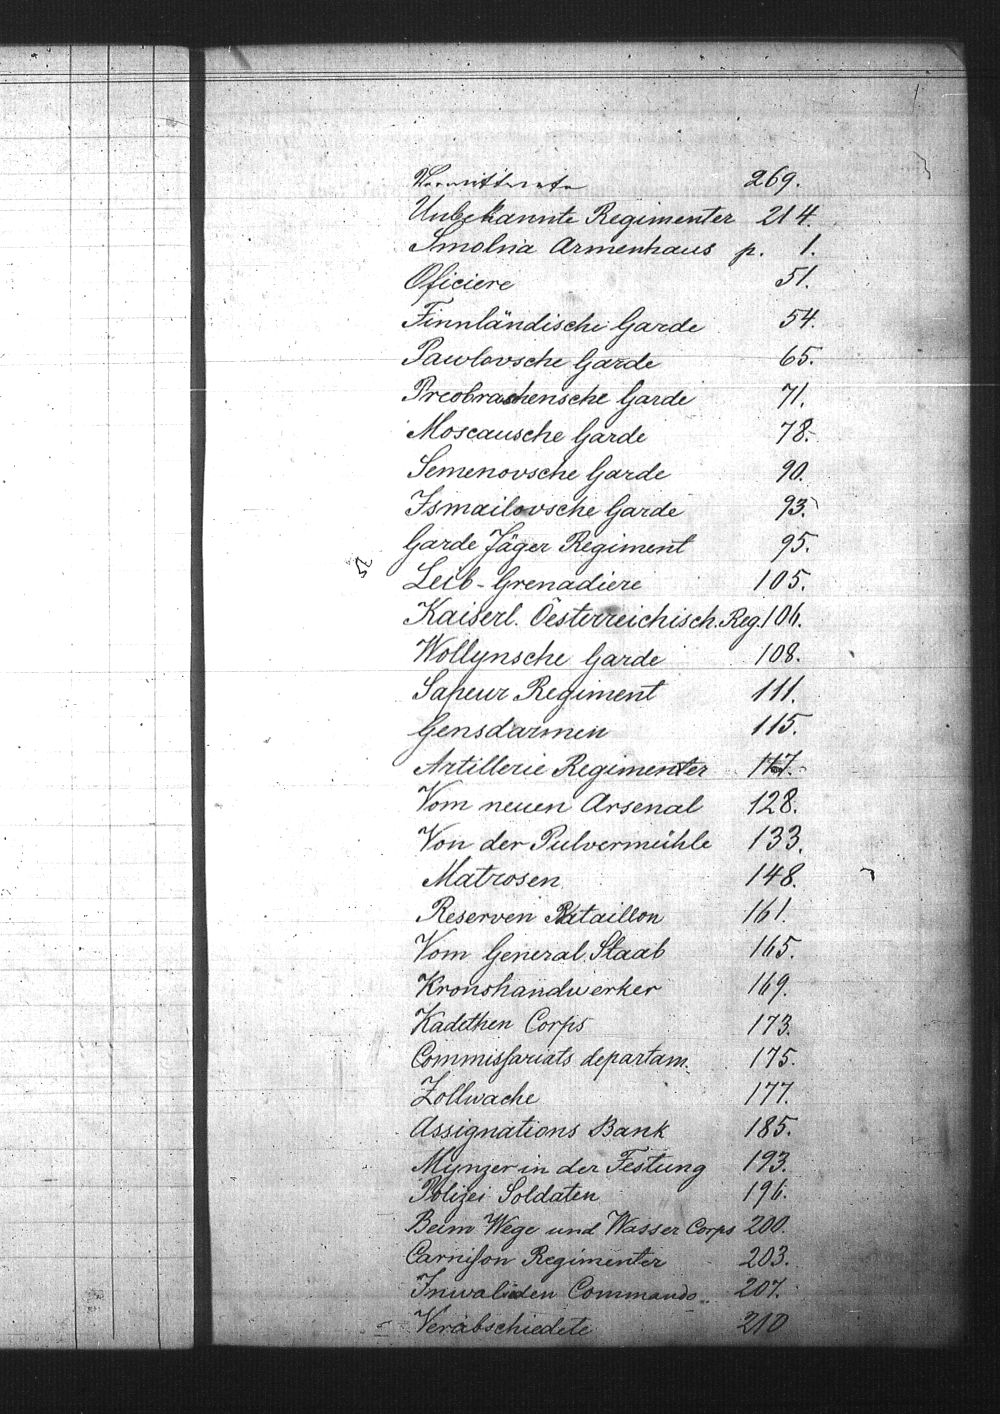 1.
269.
Unbekannte Regimenter 214.
Smolna Armenhaus p. 1.
Oficiere 51.
Finnländische Garde 54.
Pawlovsche Garde 65.
Preobraschensche Garde 71.
Moscausche Garde 78.
Semenovsche Garde 90.
Ismailovsche Garde 93.
Garde Jäger Regiment 95.
Leib-Grenadiere 105.
Kaiserl. Oesterreichisch. Reg. 106.
Wollynsche Garde 108.
Sapeur Regiment 111.
Gensdarmen 115.
Artillerie Regimenter 117.
Vom neuen Arsenal 128.
Von der Pulvermühle 133.
Matrosen 148.
Reserven Bataillon 161.
Vom General Staab 165.
Kronshandwerker 169.
Kadethen Corps 173.
Commissariats departam. 175.
Zollwache 177.
Assignations Bank 185.
Mynzer in der Festung 193.
Polizei Soldaten 196.
Beim Wege und Wasser Corps 200.
Carnison Regimenter 203.
Inwaliden Commando 207.
Verabschiedete 210